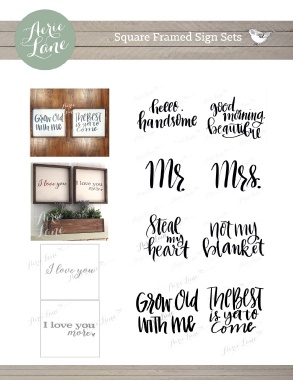 Aerie
Lane
Square Framed Sign Sets
Grow Old
with me
The Best
is yet to
come
hello,
handsome
good
morning,
beautiful
I love you
I love you
more
Mr.
Mrs.
Steal
my
heart
not my
blanket
I love you
I love you
more
Grow Old
with me
The Best
is yet to
come